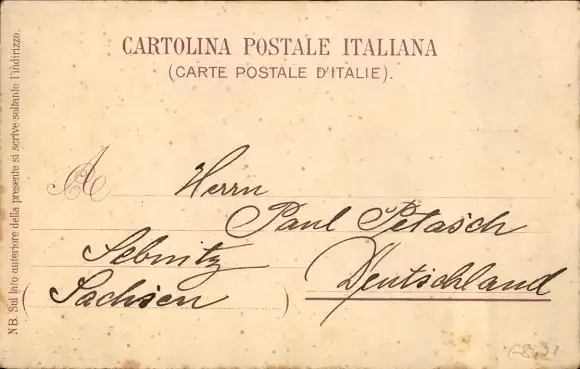 CARTOLINA POSTALE ITALIANA
(CARTE POSTALE D'ITALIE).
A Herrn
Paul Petasch
Sebnitz
Deutschland
(Sachsen)
NB. Sul lato anteriore della presente si scrive soltanto l'indirizzo.